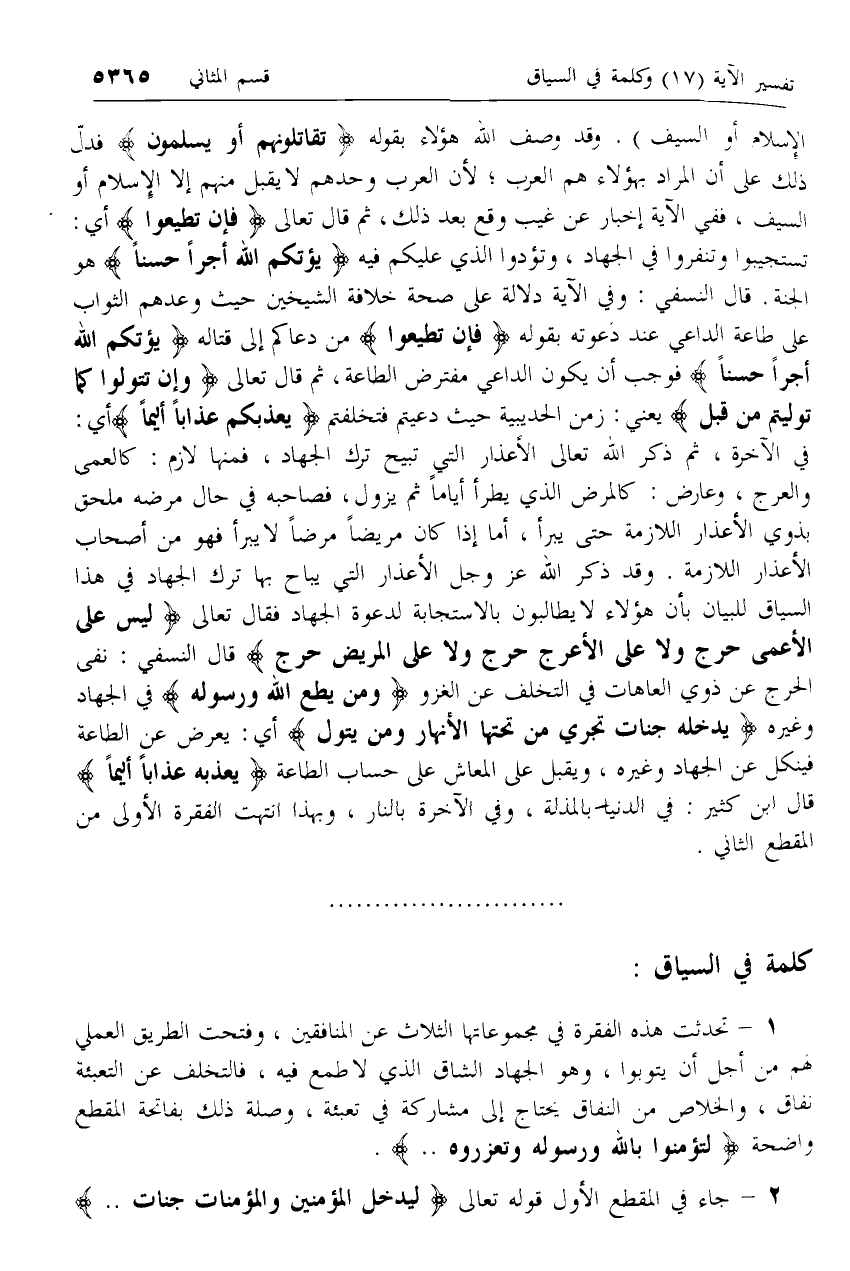 تفسير الآية (١٧) وكلمة في السياق قسم المثاني ٥٣٦٥
الإسلام أو السيف ) . وقد وصف الله هؤلاء بقوله ﴿ تقاتلونهم أو يسلمون ﴾ فدلّ
ذلك على أن المراد بهؤلاء هم العرب ؛ لأن العرب وحدهم لا يقبل منهم إلا الإسلام أو
السيف ، ففي الآية إخبار عن غيب وقع بعد ذلك ، ثم قال تعالى ﴿ فإن تطيعوا ﴾ أي :
تستجيبوا وتنفروا في الجهاد ، وتؤدوا الذي عليكم فيه ﴿ يؤتكم الله أجراً حسناً ﴾ هو
الجنة . قال النسفي : وفي الآية دلالة على صحة خلافة الشيخين حيث وعدهم الثواب
على طاعة الداعي عند دعوته بقوله ﴿ فإن تطيعوا ﴾ من دعاكم إلى قتاله ﴿ يؤتكم الله
أجراً حسناً ﴾ فوجب أن يكون الداعي مفترض الطاعة ، ثم قال تعالى ﴿ وإن تتولوا كما
توليتم من قبل ﴾ يعني : زمن الحديبية حيث دعيتم فتخلفتم ﴿ يعذبكم عذاباً أليماً ﴾ أي :
في الآخرة ، ثم ذكر الله تعالى الأعذار التي تبيح ترك الجهاد ، فمنها لازم : كالعمى
والعرج ، وعارض : كالمرض الذي يطرأ أياماً ثم يزول ، فصاحبه في حال مرضه ملحق
بذوي الأعذار اللازمة حتى يبرأ ، أما إذا كان مريضاً مرضاً لا يبرأ فهو من أصحاب
الأعذار اللازمة . وقد ذكر الله عز وجل الأعذار التي يباح بها ترك الجهاد في هذا
السياق للبيان بأن هؤلاء لا يطالبون بالاستجابة لدعوة الجهاد فقال تعالى ﴿ ليس على
الأعمى حرج ولا على الأعرج حرج ولا على المريض حرج ﴾ قال النسفي : نفى
الحرج عن ذوي العاهات في التخلف عن الغزو ﴿ ومن يطع الله ورسوله ﴾ في الجهاد
وغيره ﴿ يدخله جنات تجري من تحتها الأنهار ومن يتول ﴾ أي : يعرض عن الطاعة
فينكل عن الجهاد وغيره ، ويقبل على المعاش على حساب الطاعة ﴿ يعذبه عذاباً أليماً ﴾
قال ابن كثير : في الدنيا بالمذلة ، وفي الآخرة بالنار ، وبهذا انتهت الفقرة الأولى من
المقطع الثاني .
..........................
كلمة في السياق :
١ – تحدثت هذه الفقرة في مجموعاتها الثلاث عن المنافقين ، وفتحت الطريق العملي
لهم من أجل أن يتوبوا ، وهو الجهاد الشاق الذي لا طمع فيه ، فالتخلف عن التعبئة
نفاق ، والخلاص من النفاق يحتاج إلى مشاركة في تعبئة ، وصلة ذلك بفاتحة المقطع
واضحة ﴿ لتؤمنوا بالله ورسوله وتعزروه .. ﴾ .
٢ – جاء في المقطع الأول قوله تعالى ﴿ ليدخل المؤمنين والمؤمنات جنات .. ﴾